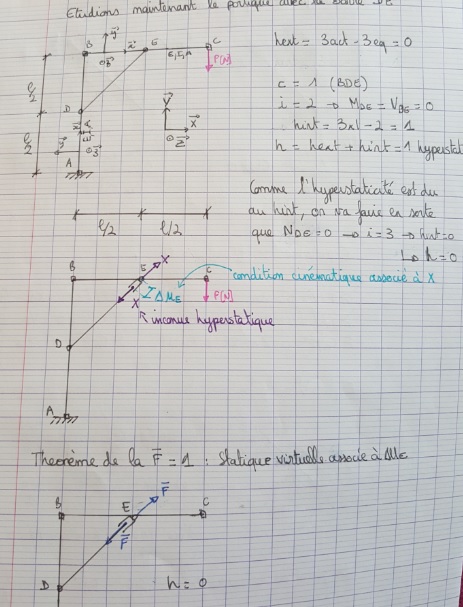 Etudions maintenant le portique avec la barre DE
B
y
x
z
E
E, I, A
C
P[N]
l/2
D
l/2
A
Y
X
Z
hext = 3act - 3eq = 0
c = 1 (BDE)
i = 2 → M_DE = V_DE = 0
hint = 3x1 - 2 = 1
h = hext + hint = 1 hyperstat
l/2 l/2
Comme l'hyperstaticité est du
au hint, on va faire en sorte
que N_DE = 0 → i = 3 → hint = 0
↳ h = 0
B
E
X
C
condition cinématique associé à X
P[N]
ΔM_E
X
inconue hyperstatique
D
A
Theorème de la F = 1 : Statique virtuelle associé à ΔM_E
B
E
F
C
F
D
h = 0